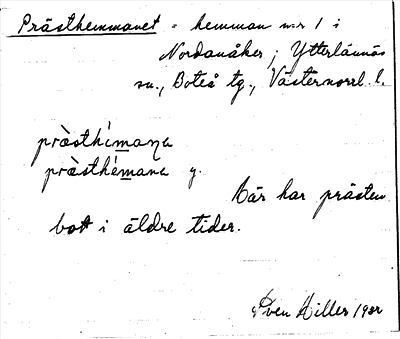 Prästhemmanet = hemman n:r 1 i
Nordanåker, Ytterlännäs
sn., Boteå tg., Västernorrl. l.
pràsthémaṇa
pràsthémana y.
Här har prästen
bott i äldre tider.
Sven Hiller 1932